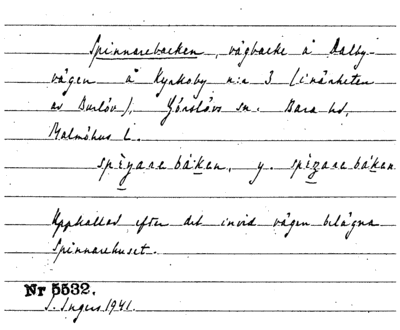 Spinnarebacken, vägbacke å Dalby-
vägen å Kyrkoby n:a 3 (i närheten
av Burlöv), Görslövs sn. Bara hd,
Malmöhus l.
spi̱narebáken, y. spi̱narebáken
Uppkallad efter det invid vägen belägna
Spinnarehuset.
Nr 5532.
I. Ingers 1941.